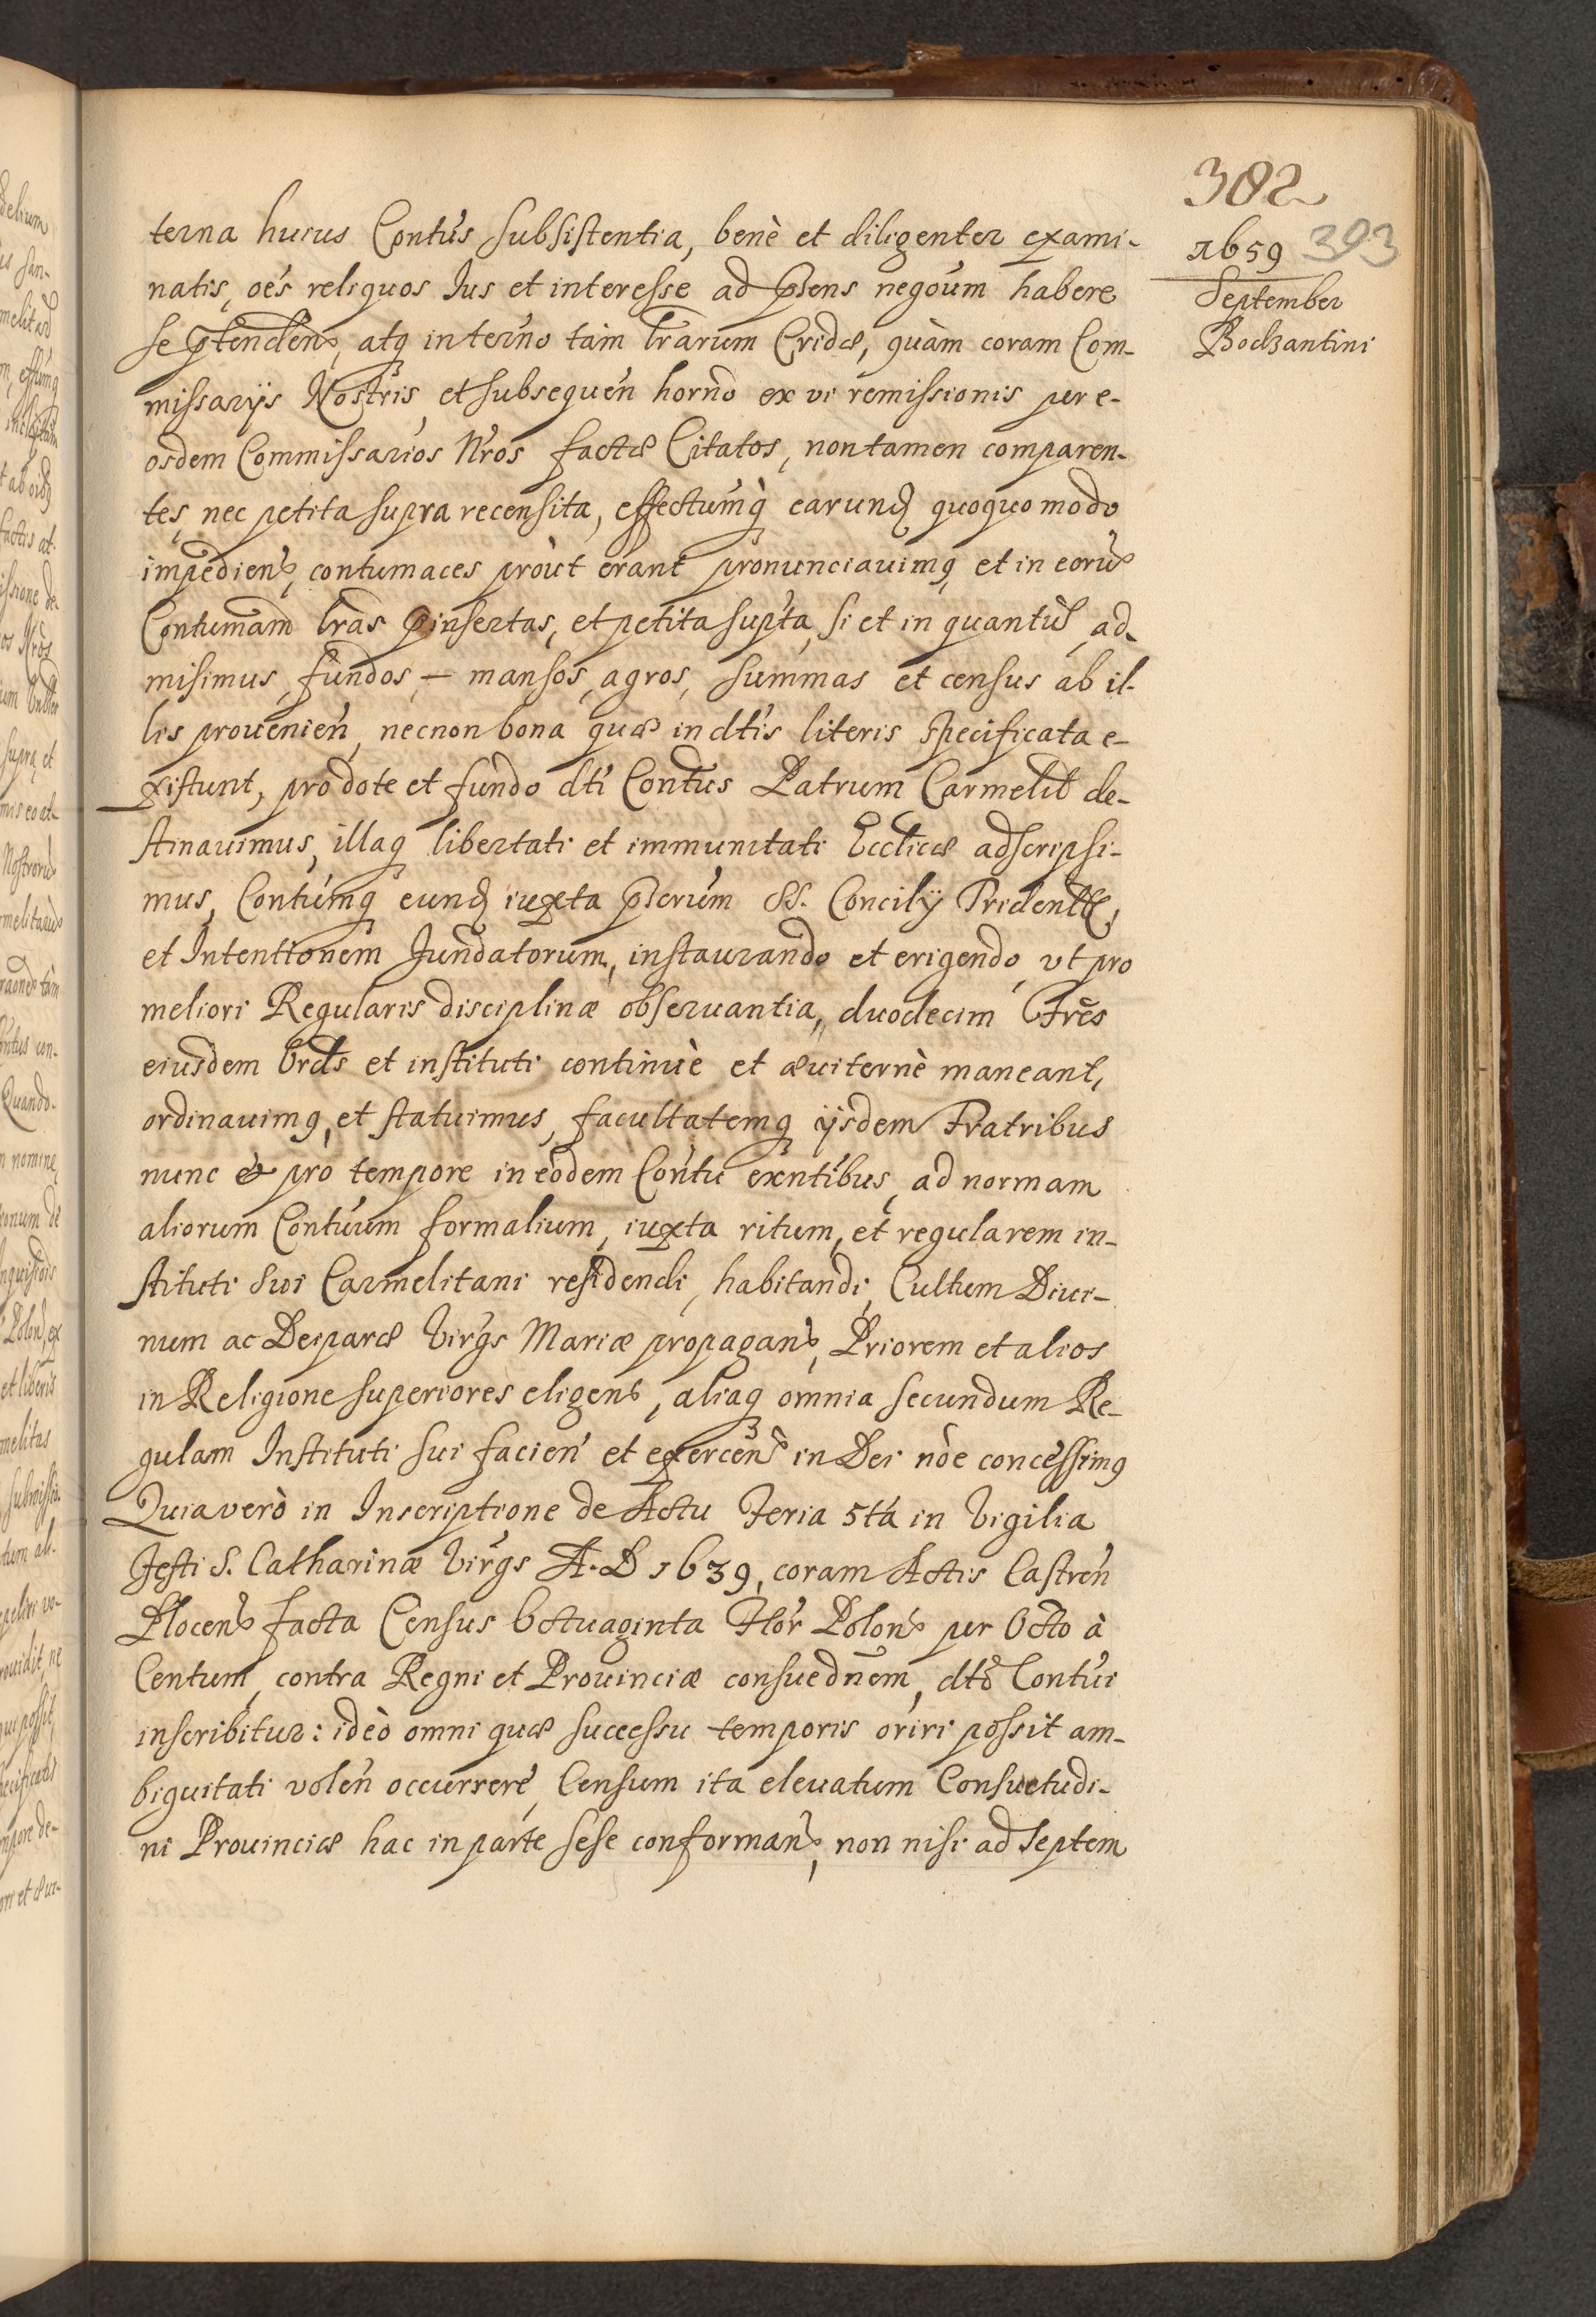 382
1659 393
September
Bodzantini
terna huius Contus subsistentia, benè et diligenter exami-
natis, oes reliquos Ius et interesse ad pnens negoum habere
se ptenden, atq in termo tàm lrarum Cridæ, quàm coram Com-
missarijs Nostris et subsequen horno ex vi remissionis per e-
osdem Commissarios Nros factæ Citatos, non tamen comparen-
tes, nec petita supra recensita, effectumq earund quoquo modo
impedien, contumaces proùt erant pronunciauimq, et in eorum
Contumam lras pinsertas, et petita supta, si et in quantum, ad-
misimus, fundos, - mansos, agros, summas et census ab il-
lis prouenien, necnon bona quæ in dtis literis specificata e-
xistunt, pro dote et fundo dti Contus Patrum Carmelit de-
stinauimus, illaq libertati et immunitati Eccliæ adscripsi-
mus, Contumq eund iuxta pscrum SS. Concilij Trident,
et Intentionem Fundatorum, instaurando et erigendo, vt pro
meliori Regularis disciplinæ obseruantia, duodecim Fres
eiusdem Ordis et instituti continuè et æuiternè maneant,
ordinauimq, et statuimus, facultatemq ijsdem Fratribus
nunc & pro tempore in eodem Contu exntibus, ad normam
aliorum Contuum formalium, iuxta ritum, et regularem in-
stituti sui Carmelitani residendi, habitandi, Cultum Diui-
num ac Deiparæ Virgs Mariæ propagan, Priorem et alios
in Religione superiores eligen, aliaq omnia secundum Re-
gulam Instituti sui facien et exercen in Dei nòe concessimq
Quia verò in Inscriptione de Actu Feria 5ta in Vigilia
Festi S. Catharinæ Virgs A.D 1639, coram Actis Castren
Plocen facta Census Octuaginta Flor Polon per Octo à
Centum, contra Regni et Prouinciæ consuednem, dto Contui
inscribitur: ideò omni quæ successu temporis oriri possit am-
biguitati volen occurrere, Censum ita eleuatum Consuetudi-
ni Prouinciæ hac in parte sese conforman, non nisi ad septem